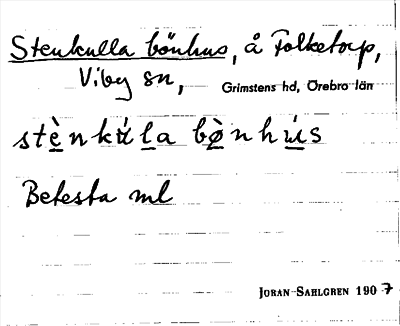 Stenkulla bönhus, å Folketorp,
Viby sn, Grimstens hd, Örebro län
stènkúla bø̀nhús
Betesta ml
JORAN SAHLGREN 1907